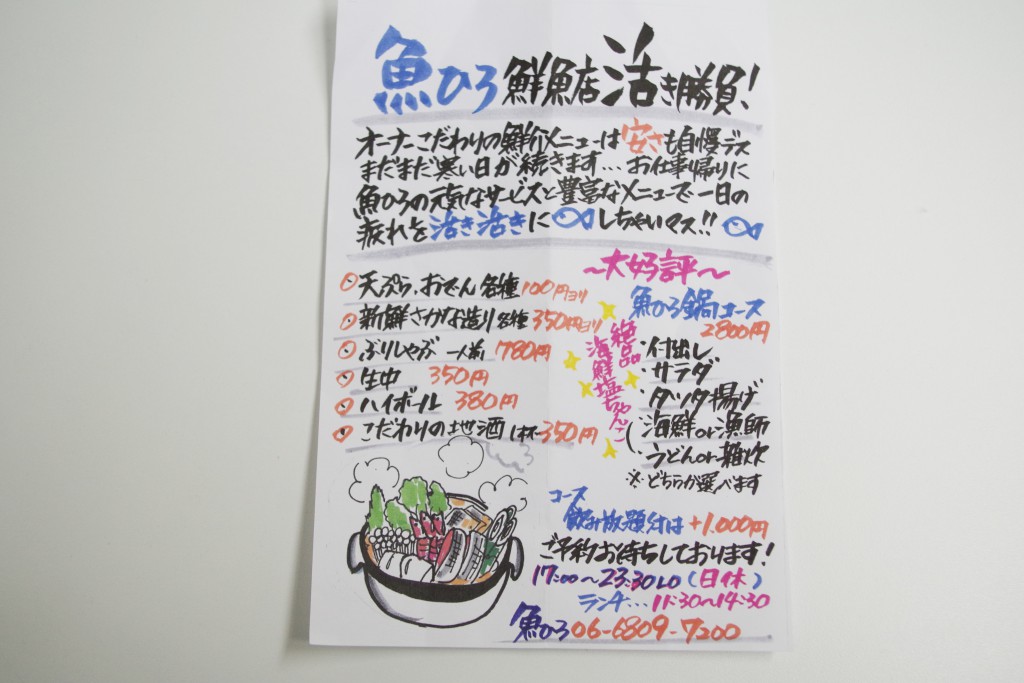 魚ひろ 鮮魚店 活き勝負!
オーナーこだわりの鮮介メニューは安さも自慢デス
まだまだ寒い日が続きます… お仕事帰りに
魚ひろの元気なサービスと豊富なメニューで一日の
疲れを活き活きにしちゃいマス!!
天ぷら、おでん 各種 100円ヨリ
新鮮さかな造り 各種 350円ヨリ
ぶりしゃぶ 一人前 780円
生中 350円
ハイボール 380円
こだわりの地酒 1杯 350円
〜大好評〜
魚ひろ鍋コース
2800円
絶品
海鮮塩ちゃんこ
・付出し
・サラダ
・タツタ揚げ
(海鮮or漁師
・うどんor雑炊
※どちらか選べます
コース
飲み放題付は +1.000円
ご予約お待ちしております!
17:00〜23:30LO (日休)
ランチ… 11:30〜14:30
魚ひろ 06-6809-7200